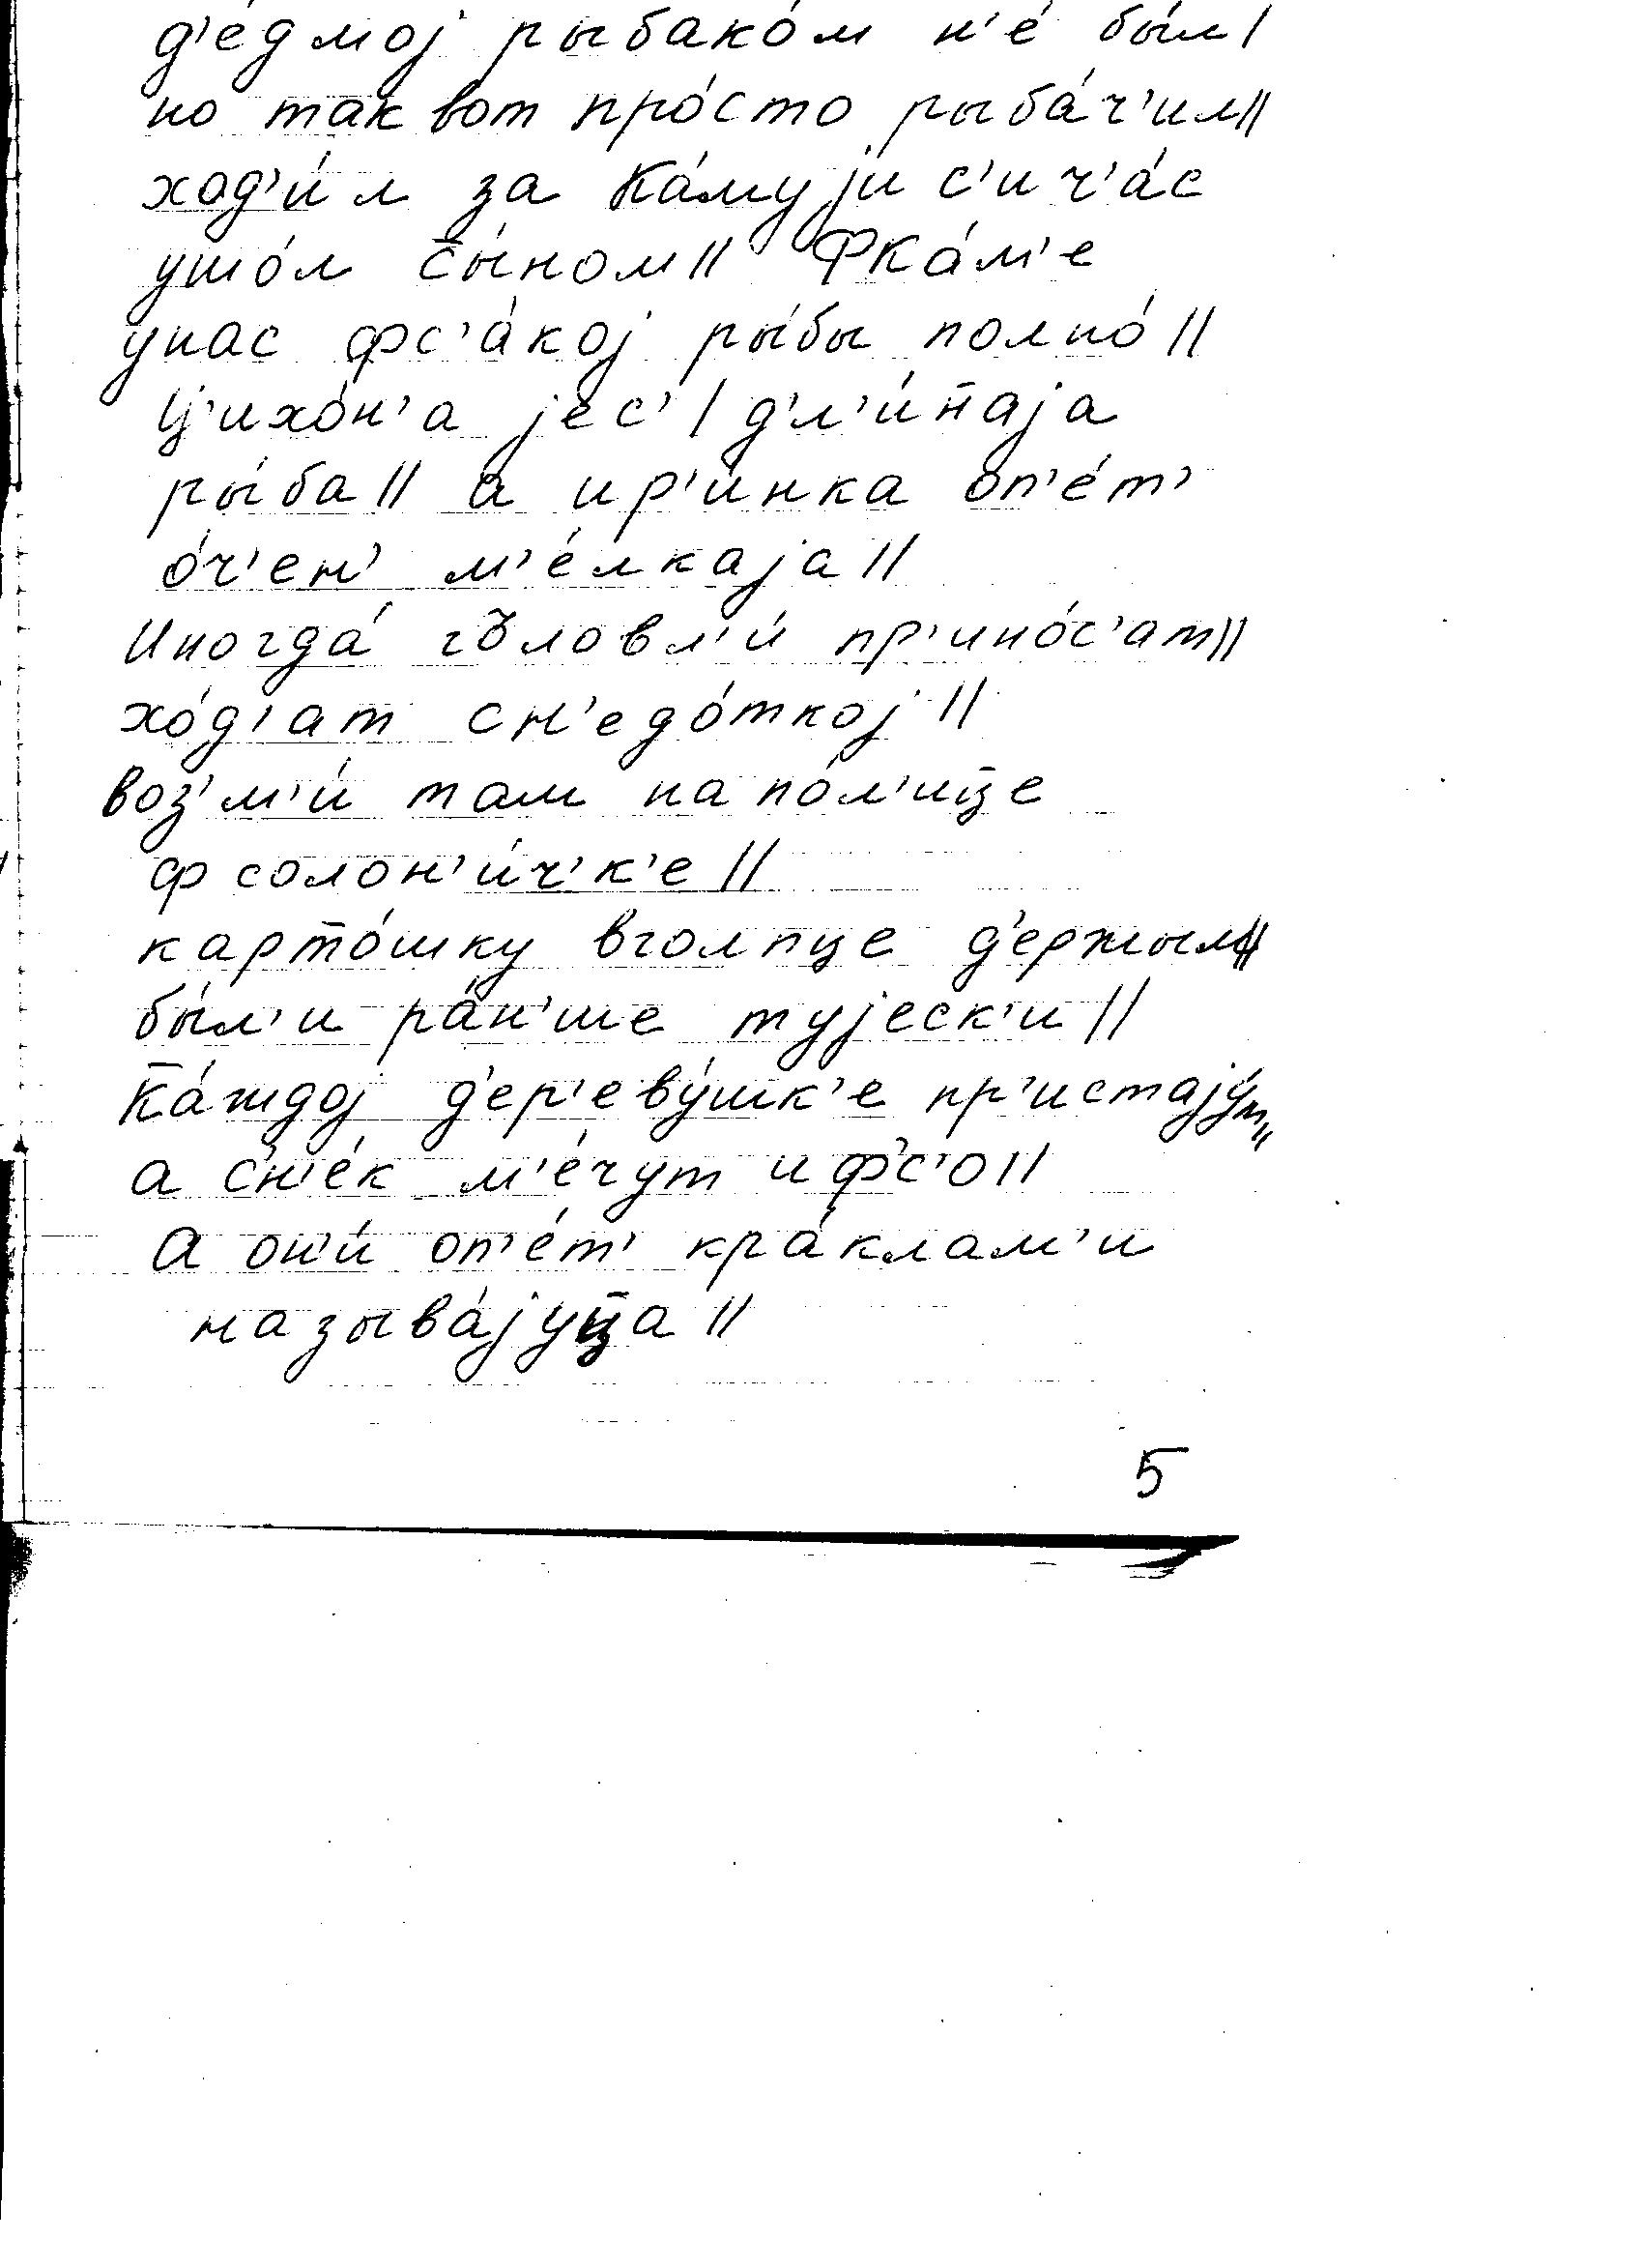 д'е́дмоj рыбако́м н'е́ бы́л/
но так вот про́сто рыба́ч'ил//
ход'и́л за Ка́му jи с'ич'а́с
ушо́л с̄ы́ном// Фка́м'е
унас фс'а́коj ры́бы полно́//
Ц'ихо́н'а jес'/ д'л'и́н̄аjа
ры́ба// а ир'и́нка оп'е́т'
о́ч'ен' м'е́лкаjа//
Иногда́ гъловл'и́ пр'ино́с'ат//
хо́д'ат сн'едо́ткоj//
воз'м'и́ там на по́л'иц̄е
ф солон'и́ч'к'е//
карто́шку вголпце д'ержыл'и//
бы́л'и ра́н'ше туjеск'и//
К̄а́ждоj д'ер'еву́шк'е пр'истаjу́т//
а с'н'е́к м'е́чут и ф'с'о//
А он'и́ оп'е́т' кра́клам'и
называ́jуц̄а//
5